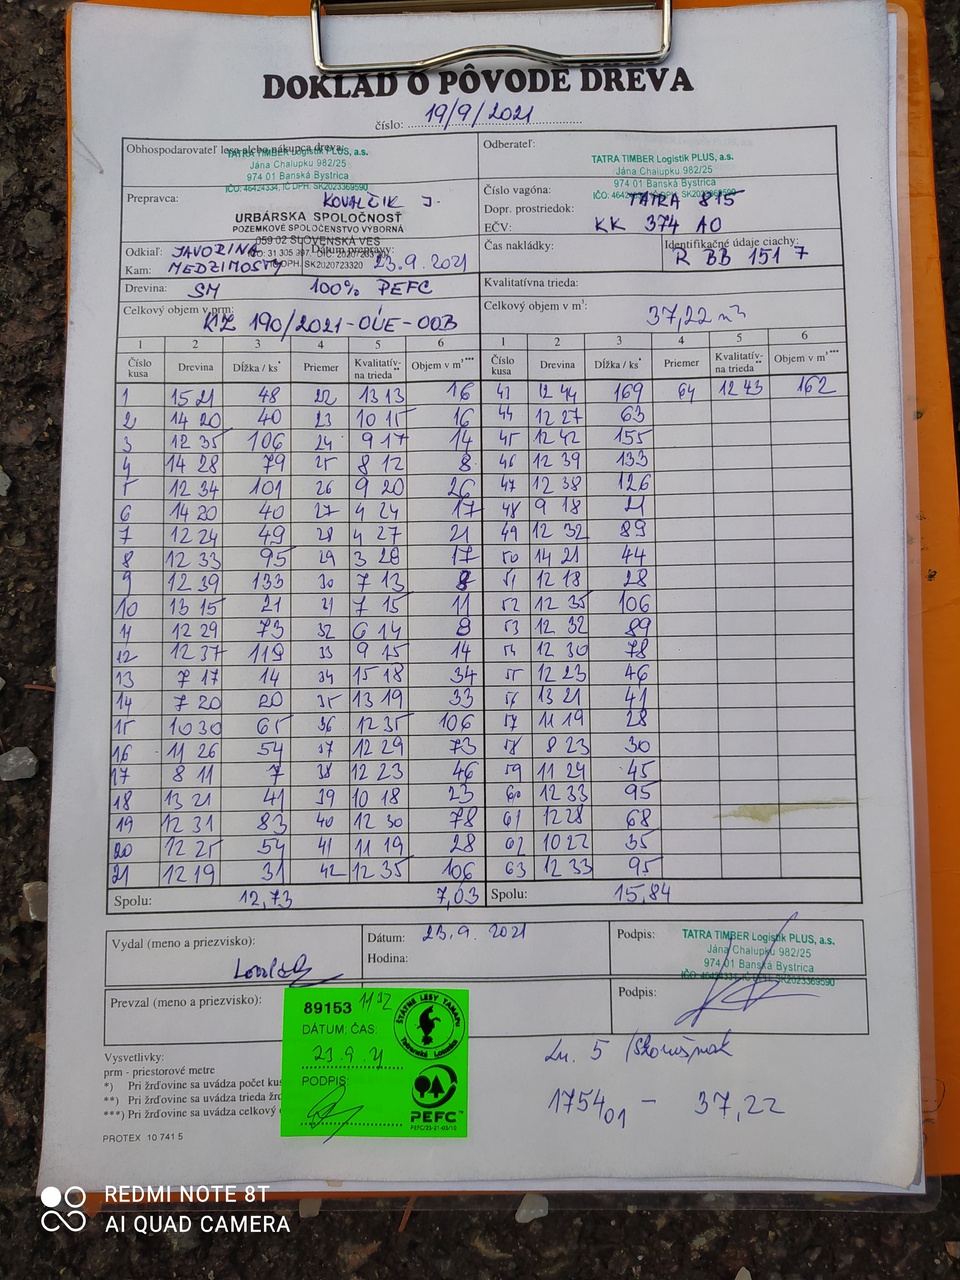 DOKLAD O PÔVODE DREVA
číslo: 19/9/2021
Obhospodarovateľ lesa alebo nákupca dreva:
TATRA TIMBER Logistik PLUS, a.s.
Jána Chalupku 982/25
974 01 Banská Bystrica
IČO: 46424334, IČ DPH: SK2023369590
Odberateľ:
TATRA TIMBER Logistik PLUS, a.s.
Jána Chalupku 982/25
974 01 Banská Bystrica
Prepravca: KOVALČIK J.
URBÁRSKA SPOLOČNOSŤ
POZEMKOVÉ SPOLOČENSTVO VÝBORNÁ
059 02 SLOVENSKÁ VES
Číslo vagóna:
Dopr. prostriedok: TATRA 815
EČV: KK 374 AO
Odkiaľ: JAVORINA
Dátum prepravy: 23.9.2021
Kam: MEDZIMOSTY
Čas nakládky:
Identifikačné údaje ciachy:
R BB 151 7
Drevina: SM 100% PEFC
Kvalitatívna trieda:
Celkový objem v prm:
KIZ 190/2021-OÚE-OOB
Celkový objem v m³: 37,22 m³
1 2 3 4 5 6 1 2 3 4 5 6
Číslo kusa Drevina Dĺžka / ks* Priemer Kvalitatívna trieda** Objem v m³*** Číslo kusa Drevina Dĺžka / ks* Priemer Kvalitatívna trieda** Objem v m³***
1 15 21 48 22 13 13 16 43 12 44 169 64 12 43 162
2 14 20 40 23 10 15 16 44 12 27 63
3 12 35 106 24 9 17 14 45 12 42 155
4 14 28 79 25 8 12 8 46 12 39 133
5 12 34 101 26 9 20 26 47 12 38 126
6 14 20 40 27 4 24 17 48 9 18 21
7 12 24 49 28 4 27 21 49 12 32 89
8 12 33 95 29 3 28 17 50 14 21 44
9 12 39 133 30 7 13 8 51 12 18 28
10 13 15 21 31 7 15 11 52 12 35 106
11 12 29 73 32 6 14 8 53 12 32 89
12 12 37 119 33 9 15 14 54 12 30 78
13 7 17 14 34 15 18 34 55 12 23 46
14 7 20 20 35 13 19 33 56 13 21 41
15 10 30 65 36 12 35 106 57 11 19 28
16 11 26 54 37 12 29 73 58 8 23 30
17 8 11 7 38 12 23 46 59 11 24 45
18 13 21 41 39 10 18 23 60 12 33 95
19 12 31 83 40 12 30 78 61 12 28 68
20 12 25 54 41 11 19 28 62 10 27 35
21 12 19 31 42 12 35 106 63 12 33 95
Spolu: 12,73 7,03 Spolu: 15,84
Vydal (meno a priezvisko):
Dátum: 23.9.2021
Hodina:
Podpis:
TATRA TIMBER Logistik PLUS, a.s.
Jána Chalupku 982/25
974 01 Banská Bystrica
IČO: 46424334, IČ DPH: SK2023369590
Prevzal (meno a priezvisko):
Podpis:
89153
DÁTUM; ČAS:
23.9.21
PODPIS:
ŠTÁTNE LESY TANAPU
Tatranská Lomnica
PEFC
PEFC/23-21-03/10
Vysvetlivky:
prm - priestorové metre
*) Pri žrďovine sa uvádza počet kus
**) Pri žrďovine sa uvádza trieda žrď
***) Pri žrďovine sa uvádza celkový
PROTEX 10 741 5
1754 01 - 37,22
REDMI NOTE 8T
AI QUAD CAMERA